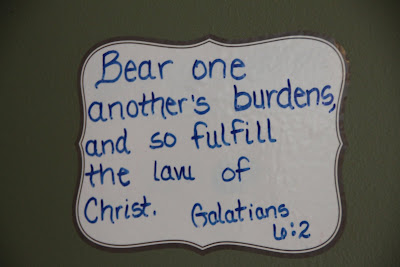 Bear one
another's burdens,
and so fulfill
the law of
Christ. Galatians
6:2